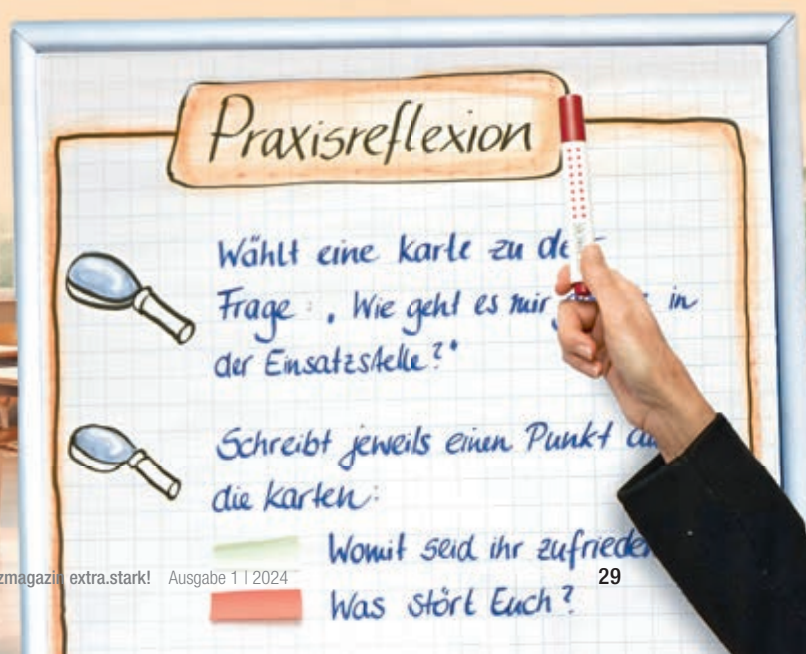 Praxisreflexion
Wählt eine Karte zu de
Frage: „Wie geht es mir in
der Einsatzstelle?“
Schreibt jeweils einen Punkt
die Karten:
Womit seid ihr zufrieden
Was stört Euch?
zmagazin extra.stark! Ausgabe 1 | 2024
29